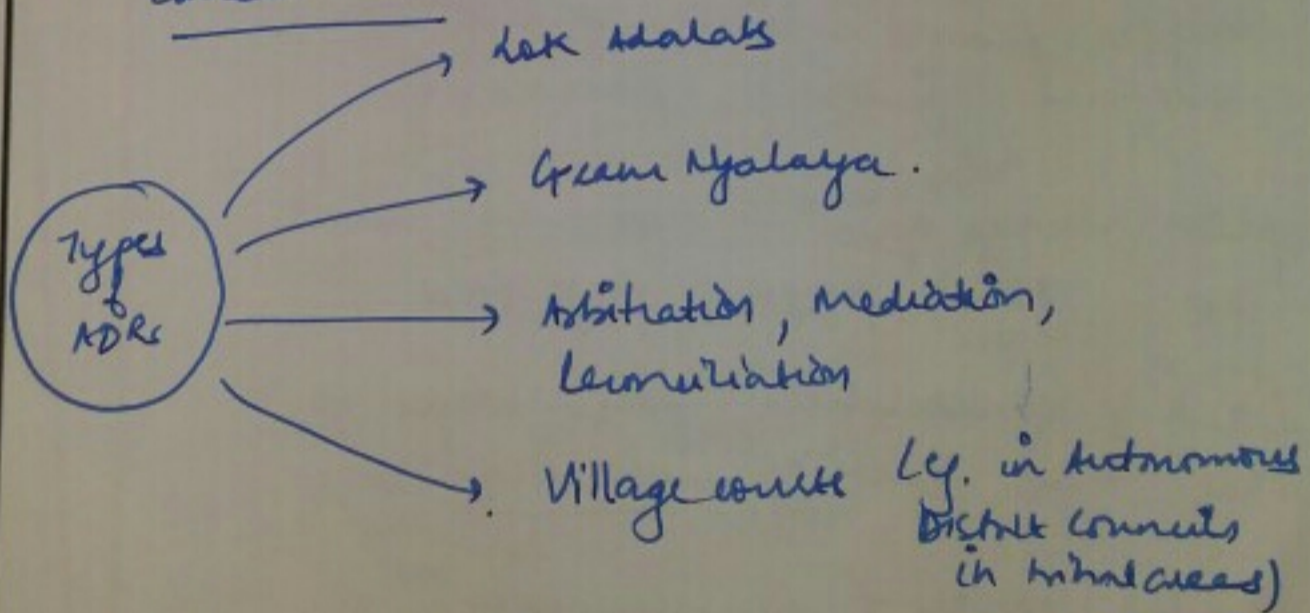 Lok Adalats
Gram Nyalaya.
Types
of
ADRs
Arbitration, Mediation,
Reconciliation
Village courts (eg. in Autonomous
District Councils
in tribal areas)